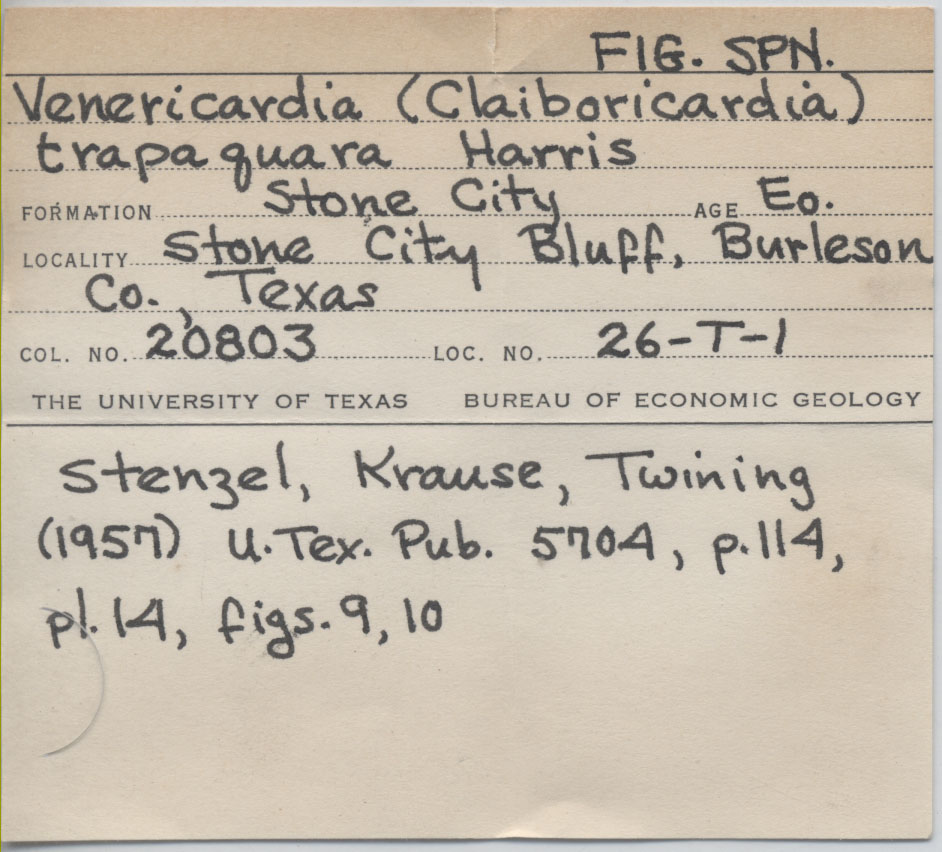 FIG. SPN.
Venericardia (Claiboricardia)
trapaquara Harris
FORMATION Stone City AGE Eo.
LOCALITY Stone City Bluff, Burleson
Co., Texas
COL. NO. 20803 LOC. NO. 26-T-1
THE UNIVERSITY OF TEXAS BUREAU OF ECONOMIC GEOLOGY
Stenzel, Krause, Twining
(1957) U.Tex. Pub. 5704, p.114,
pl.14, figs.9,10